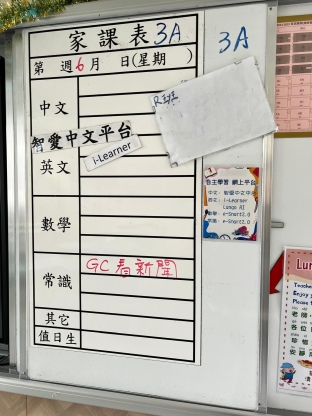 家課表3A
3A
第 週6月 日(星期 )
R班
中文
智愛中文平台
i-Learner
英文
數學
常識 GC看新聞
其它
值日生
自主學習 網上平台
中文：智愛中文平台
英文：i-Learner
Lungo AI
數學：e-Smart2.0
常識：e-Smart2.0
Lun
Teache
Enjoy y
Please t
老師
各位
珍惜
安靜